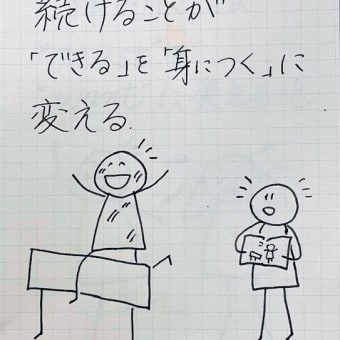 続けることが
「できる」を「身につく」に
変える.